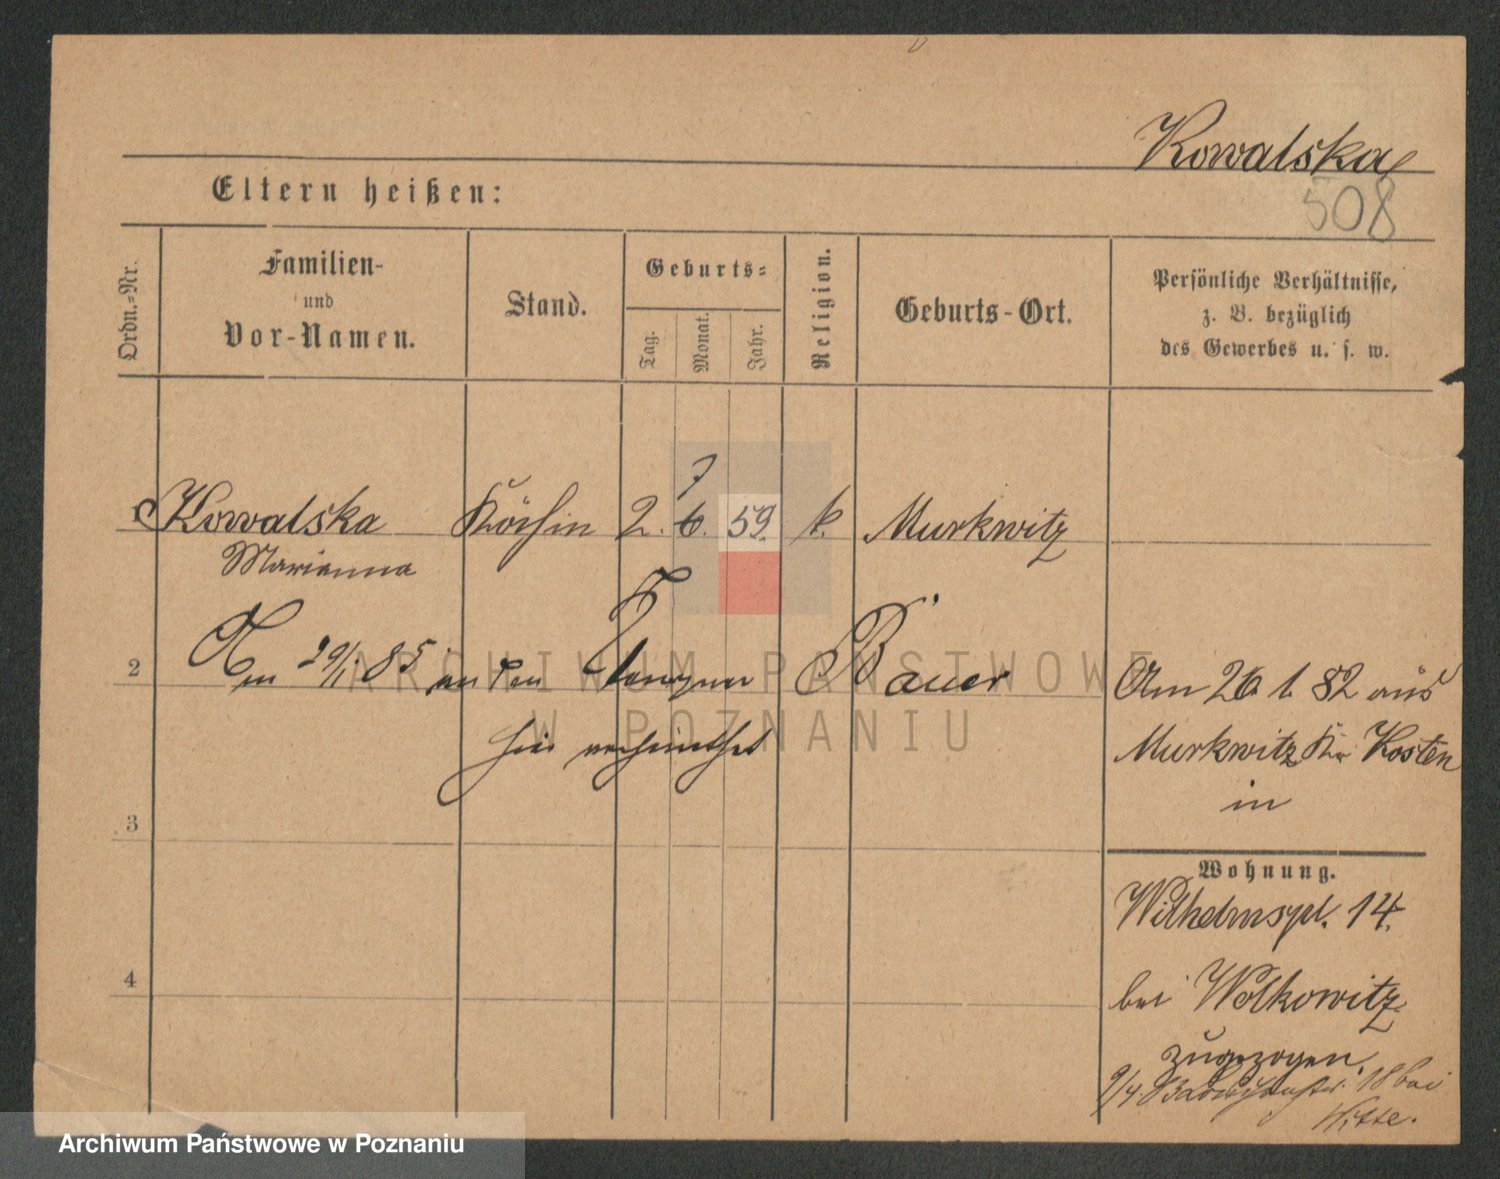 Kowalska
508
Eltern heißen:
Ordn.-Nr.
Familien-
und
Vor-Namen.
Stand.
Geburts-
Tag.
Monat.
Jahr.
Religion.
Geburts-Ort.
Persönliche Verhältnisse,
z. B. bezüglich
des Gewerbes u. s. w.
7
Kowalska Köchin 2. 6. 59. k. Murkwitz
Marianna
2 Am 29/1 85 an den Bauer
hier verheirathet
Am 26. 1. 82 aus
Murkwitz Kr. Kosten
in
3
Wohnung.
Wilhelmspl. 14.
4
bei Wolkowitz
zugezogen.
9/4 83 18 bei
Witte.
ARCHIWUM PAŃSTWOWE
W POZNANIU
Archiwum Państwowe w Poznaniu